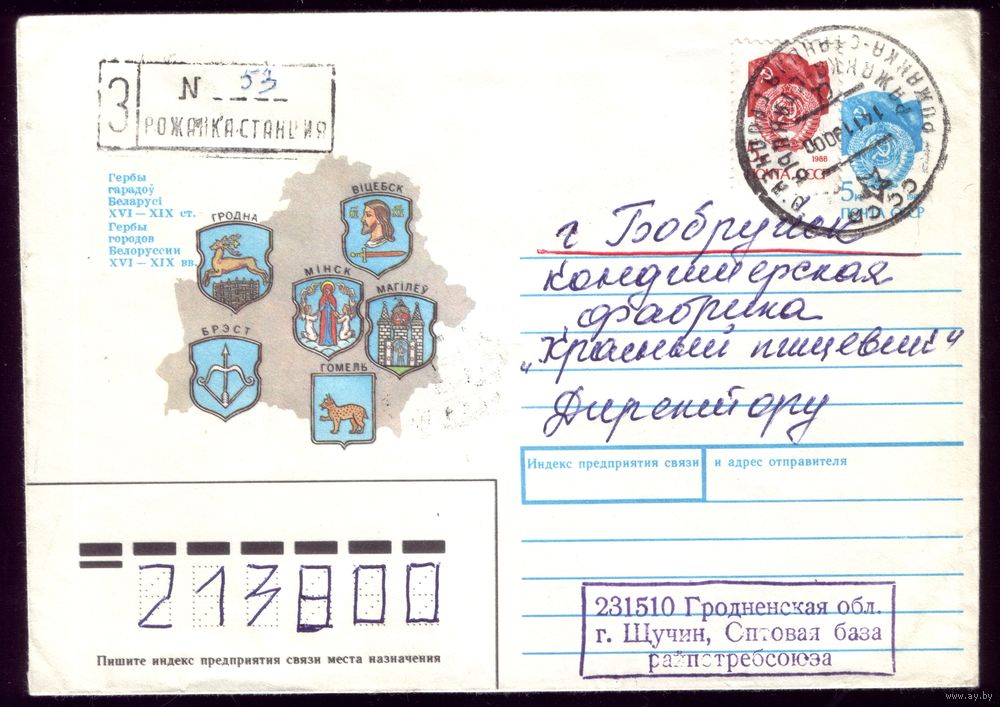 З
N 53
РОЖАНКА-СТАНЦИЯ
Гербы
гарадоў
Беларусі
XVI — XIX ст.
Гербы
городов
Белоруссии
XVI — XIX вв.
ГРОДНА
ВІЦЕБСК
МІНСК
МАГІЛЕЎ
БРЭСТ
ГОМЕЛЬ
1988
ПОЧТА СССР
5к
ПОЧТА СССР
СССР
г Бобруйск
кондитерская
фабрика
„Красный пищевик“
Директору
Индекс предприятия связи и адрес отправителя
213800
Пишите индекс предприятия связи места назначения
231510 Гродненская обл.
г. Щучин, Оптовая база
райпотребсоюза
www.ay.by